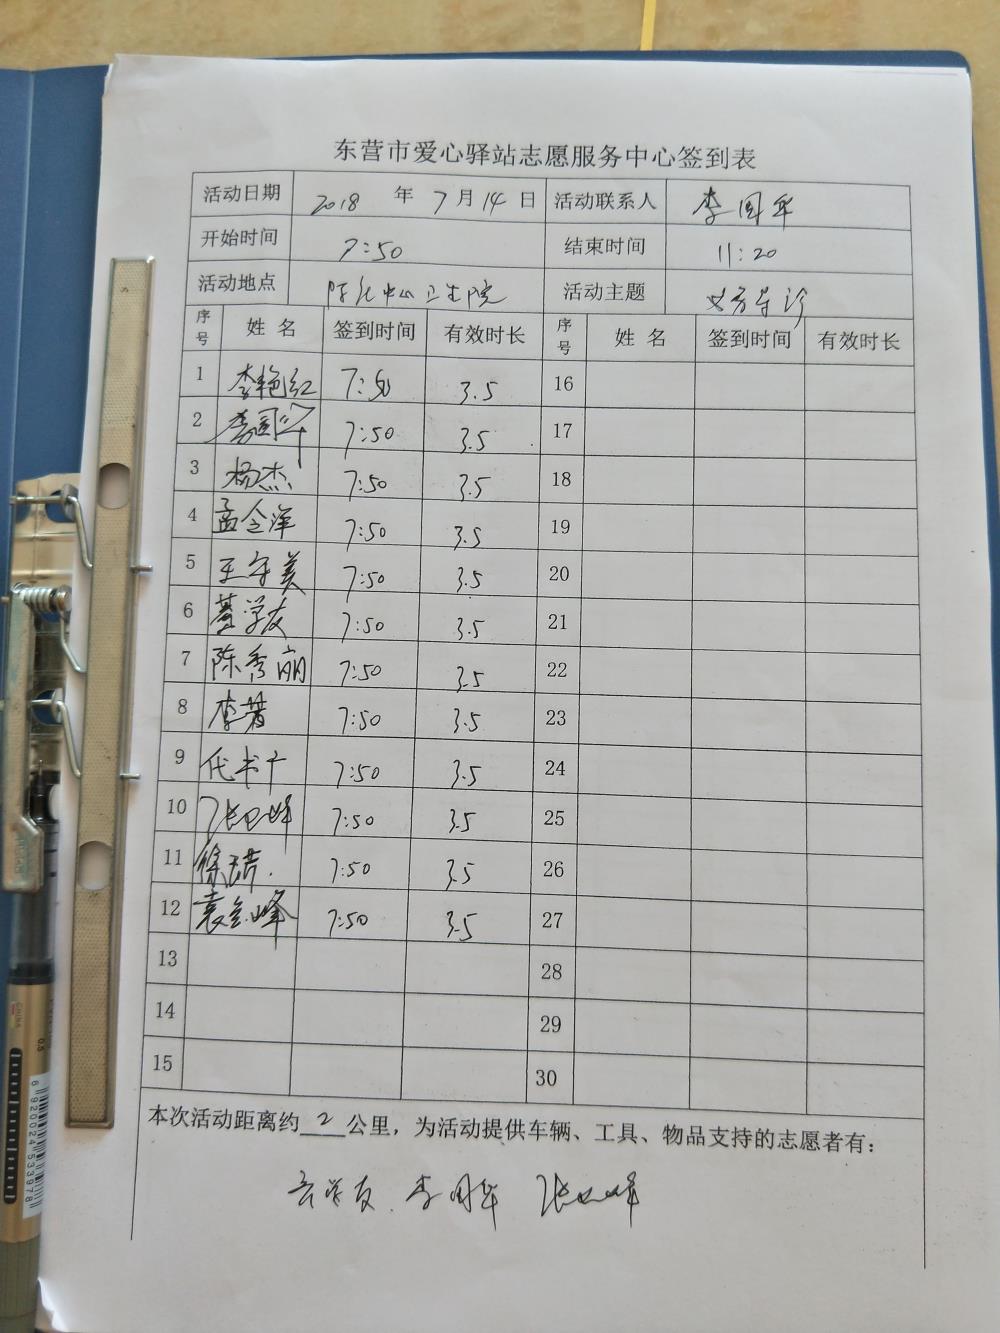 东营市爱心驿站志愿服务中心签到表
活动日期 2018 年 7 月 14 日 活动联系人 李国华
开始时间 7:50 结束时间 11:20
活动地点 中心卫生院 活动主题 导诊
序号 姓 名 签到时间 有效时长 序号 姓 名 签到时间 有效时长
1 李艳红 7:50 3.5 16
2 李国华 7:50 3.5 17
3 杨杰 7:50 3.5 18
4 孟令洋 7:50 3.5 19
5 王守美 7:50 3.5 20
6 学友 7:50 3.5 21
7 陈秀丽 7:50 3.5 22
8 李芳 7:50 3.5 23
9 代书 7:50 3.5 24
10 张 峰 7:50 3.5 25
11 徐 7:50 3.5 26
12 袁 峰 7:50 3.5 27
13 28
14 29
15 30
本次活动距离约 2 公里，为活动提供车辆、工具、物品支持的志愿者有：
学友 李国华 张 峰
CHINA
0.5
6920024533978